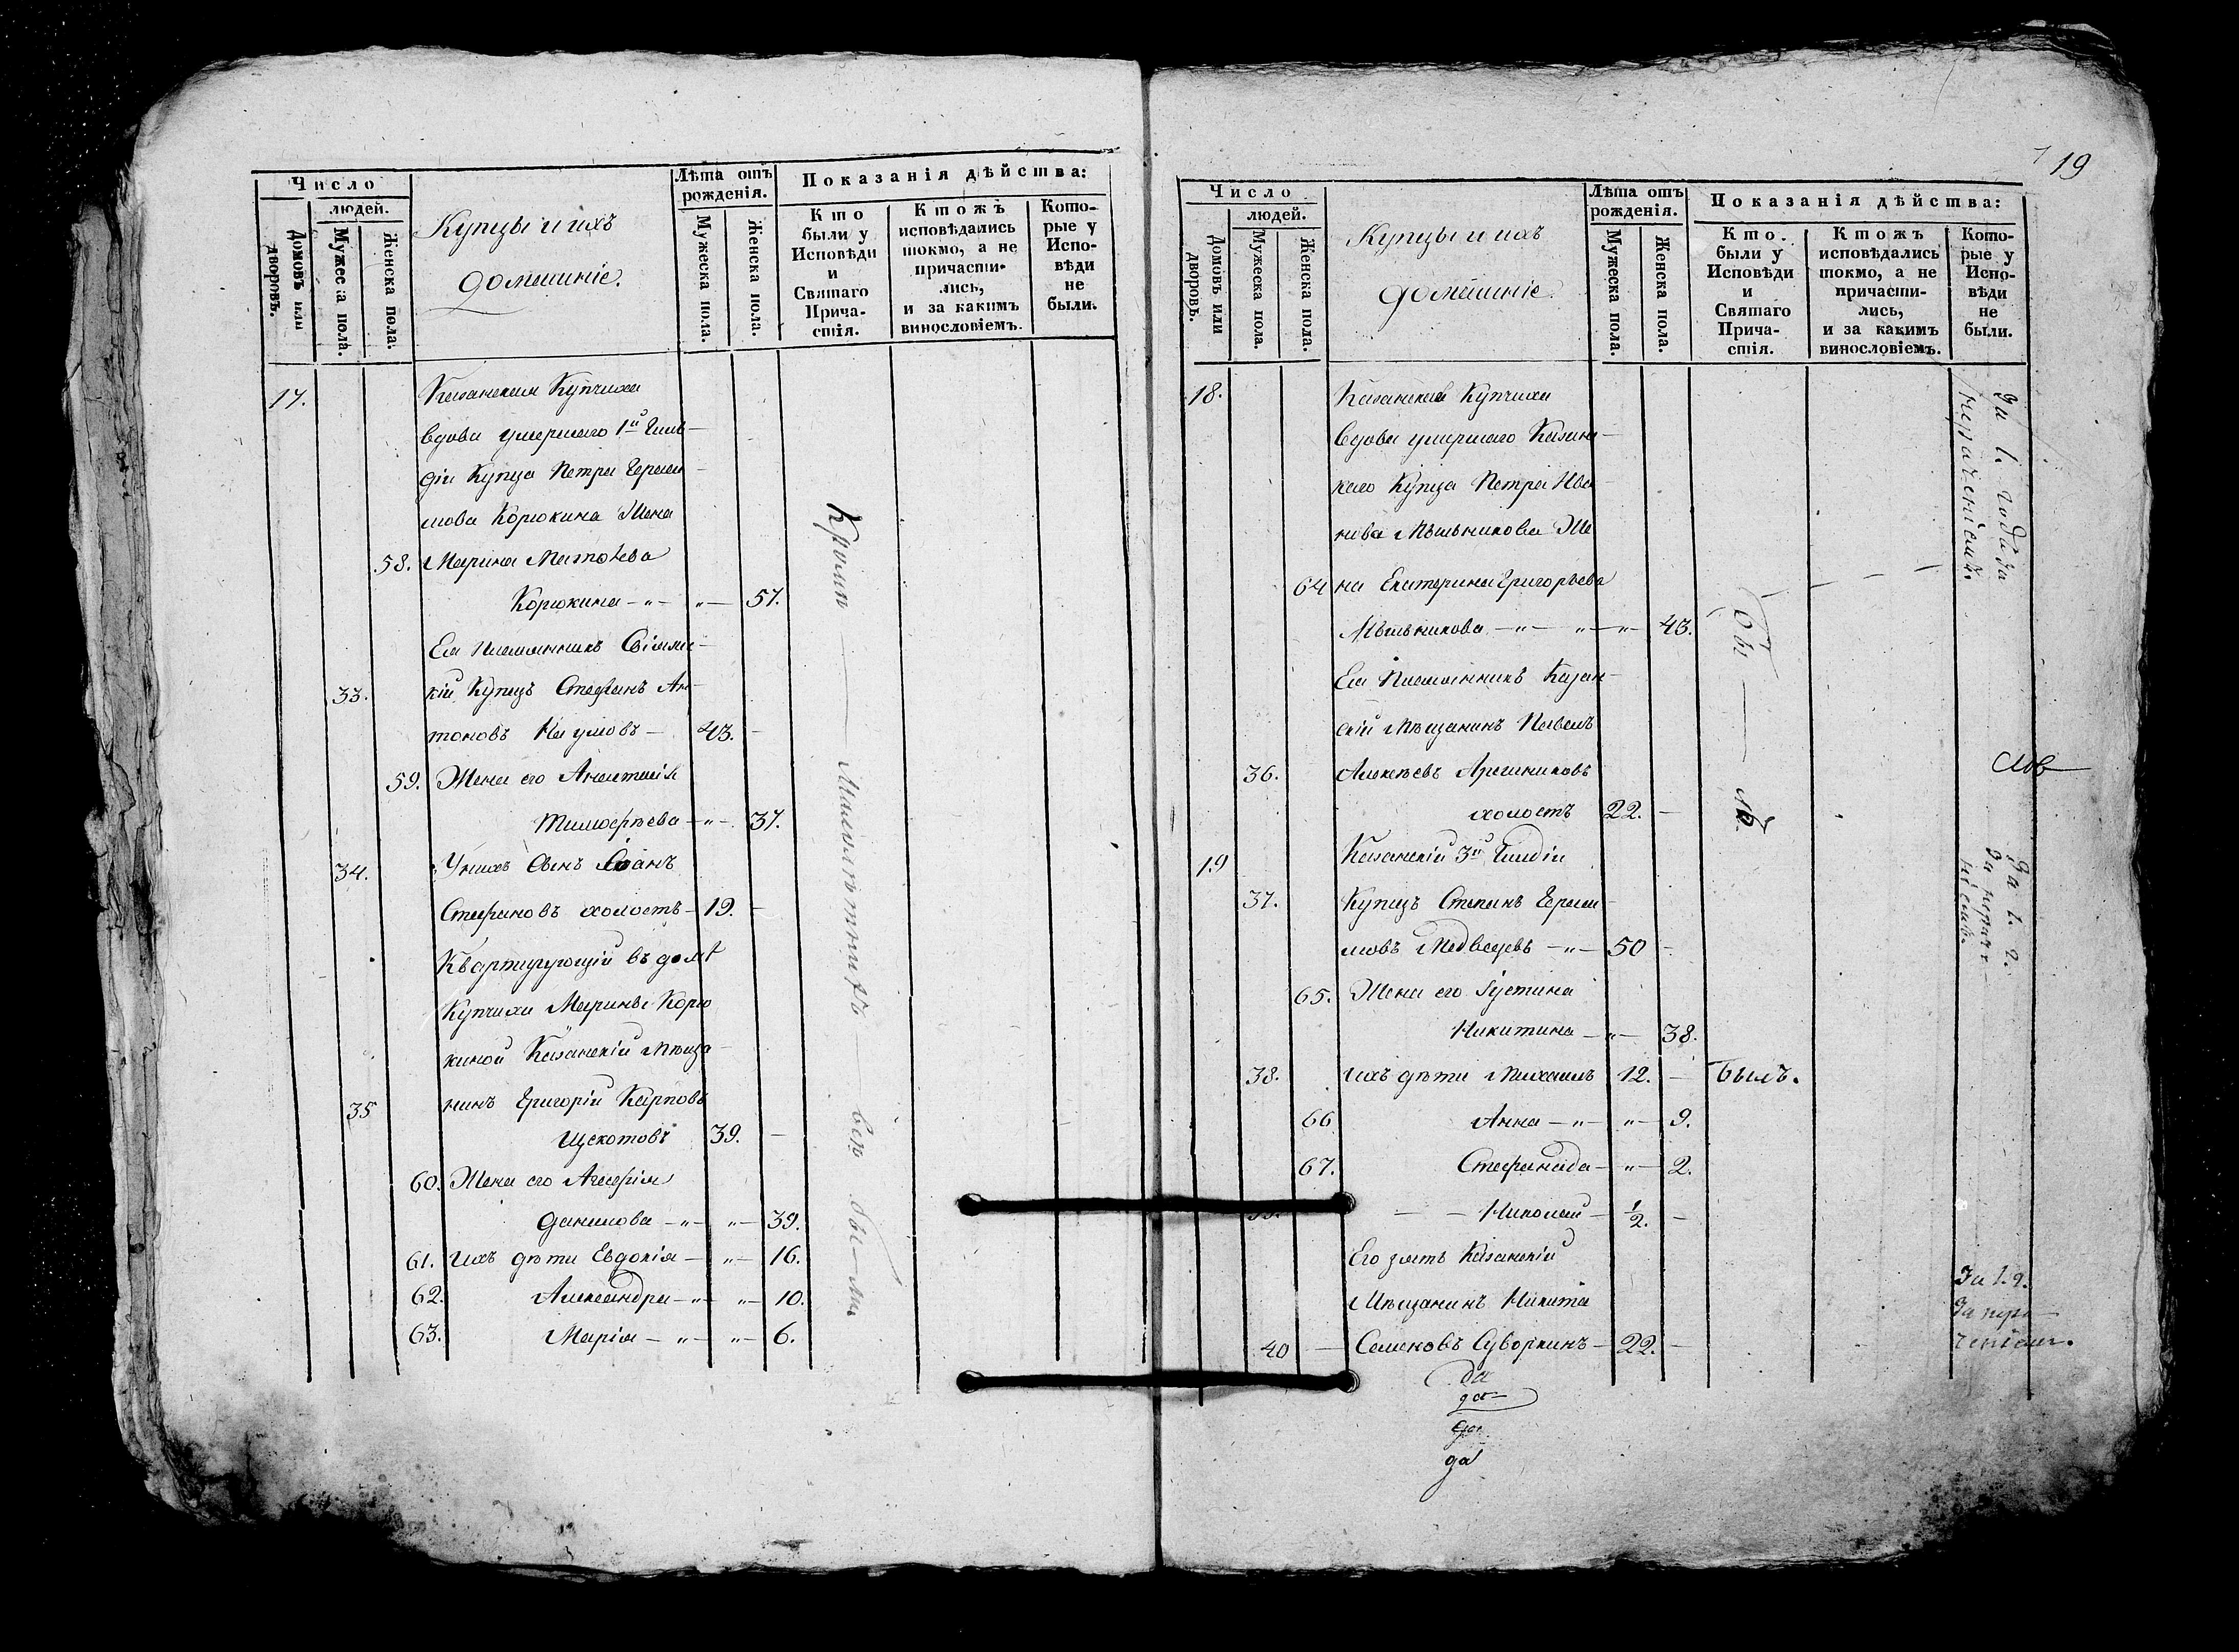 Число
людей.
Домовъ или дворовъ.
Мужеска пола.
Женска пола.
Купцы и ихъ
домашніе.
Лѣта отъ рожденія.
Мужеска пола.
Женска пола.
Показанія дѣйства:
Кто были у Исповѣди и Святаго Прича-стія.
Ктожъ исповѣдались токмо, а не причасти-лись, и за какимъ винословіемъ.
Кото-рые у Испо-вѣди не были.
17. Казанская Купчиха
вдова умершаго 1й Гиль-
діи Купца Петра Гераси-
мова Корюкина Жена
58. Марина Матѳѣева
Корюкина —„— „— 57.
Ея племянникъ
33. кій Купецъ Стефанъ Ан-
тоновъ Наумовъ — 43. —
59. Жена его Анастасія
Тимоѳѣева —„— 37.
34. У нихъ сынъ Іоанъ
Стефановъ холостъ — 19. —
Квартирующій въ домѣ
Купчихи Марины Корю
киной Казанскій мѣща-
35 нинъ Григорій Карповъ
Щекотовъ 39. —
60. Жена его Агафія
Данилова —„— „— 39.
61. ихъ дѣти Евдокія — „— 16.
62. Александра —„— „— 10.
63. Марія — „— „— 6.
Кромѣ — Малолѣтнихъ — всѣ бы-ли
19
Число
людей.
Домовъ или дворовъ.
Мужеска пола.
Женска пола.
Купцы и ихъ
домашніе.
Лѣта отъ рожденія.
Мужеска пола.
Женска пола.
Показанія дѣйства:
Кто были у Исповѣди и Святаго Прича-стія.
Ктожъ исповѣдались токмо, а не причасти-лись, и за какимъ винословіемъ.
Кото-рые у Испо-вѣди не были.
18. Казанская Купчиха
вдова умершаго Казанс-
каго Купца Петра Ива-
нова Мѣльникова Же
64 на Екатерина Григорьева
Мѣльникова —„— „—„— 43.
Ея племянникъ Казан-
скій мѣщанинъ Павелъ
36. Алексѣевъ
холостъ 22. —
19 Казанскій 3й Гилдіи
37. Купецъ Степанъ Гераси-
мовъ Медведевъ —„— 50 —
65. Жена его Іустина
Никитина —„— 38.
38. ихъ дѣти Михаилъ 12. — былъ.
66 Анна —„— „— 9.
67. Стефанида — „— 2.
— — Николай — 1/2. —
Его зять Казанскій
мѣщанинъ Никита
40 — Семеновъ Суворкинъ — 22. —
За 1. г.
За нера-
ченіем.
да
да
да